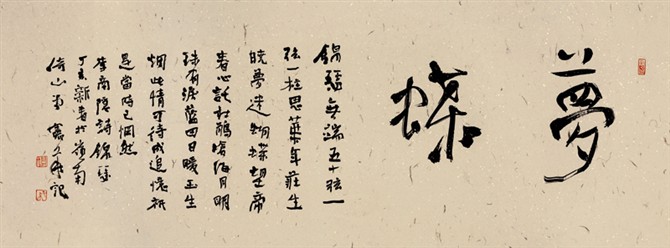 夢蝶
錦瑟無端五十弦一
弦一柱思華年莊生
曉夢迷蝴蝶望帝
春心託杜鵑滄海月明
珠有淚藍田日暖玉生
烟此情可待成追憶祇
是當時已惘然
李商隱詩錦瑟
丁亥新春於嶺南
倚山堂